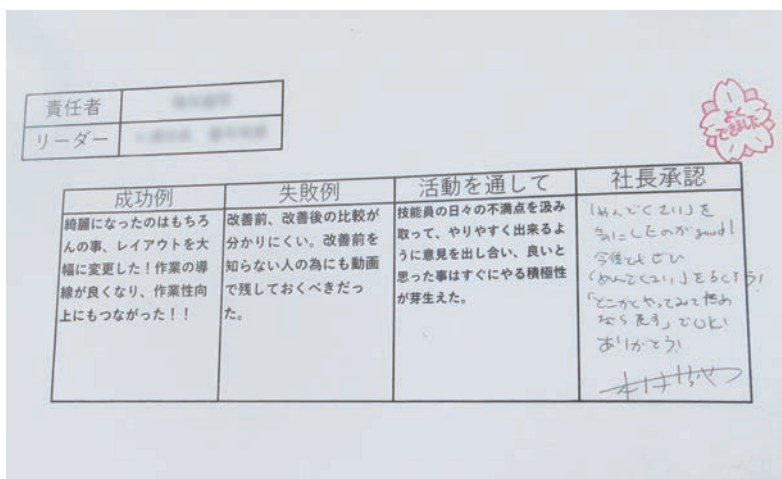 責任者
リーダー
よく
できました
成功例
綺麗になったのはもちろ
んの事、レイアウトを大
幅に変更した！作業の導
線が良くなり、作業性向
上にもつながった！！
失敗例
改善前、改善後の比較が
分かりにくい。改善前を
知らない人の為にも動画
で残しておくべきだっ
た。
活動を通して
技能員の日々の不満点を汲み
取って、やりやすく出来るよ
うに意見を出し合い、良いと
思った事はすぐにやる積極性
が芽生えた。
社長承認
「めんどくさい」を
にしたのがgood!
今後もぜひ
「めんどくさい」を
やってみて
なら戻す」でOK!
ありがとう!